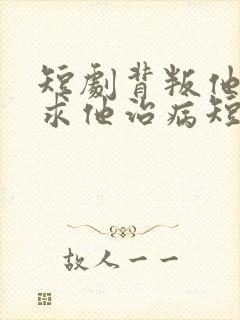 短劇背叛他
求他治病短
故人一一